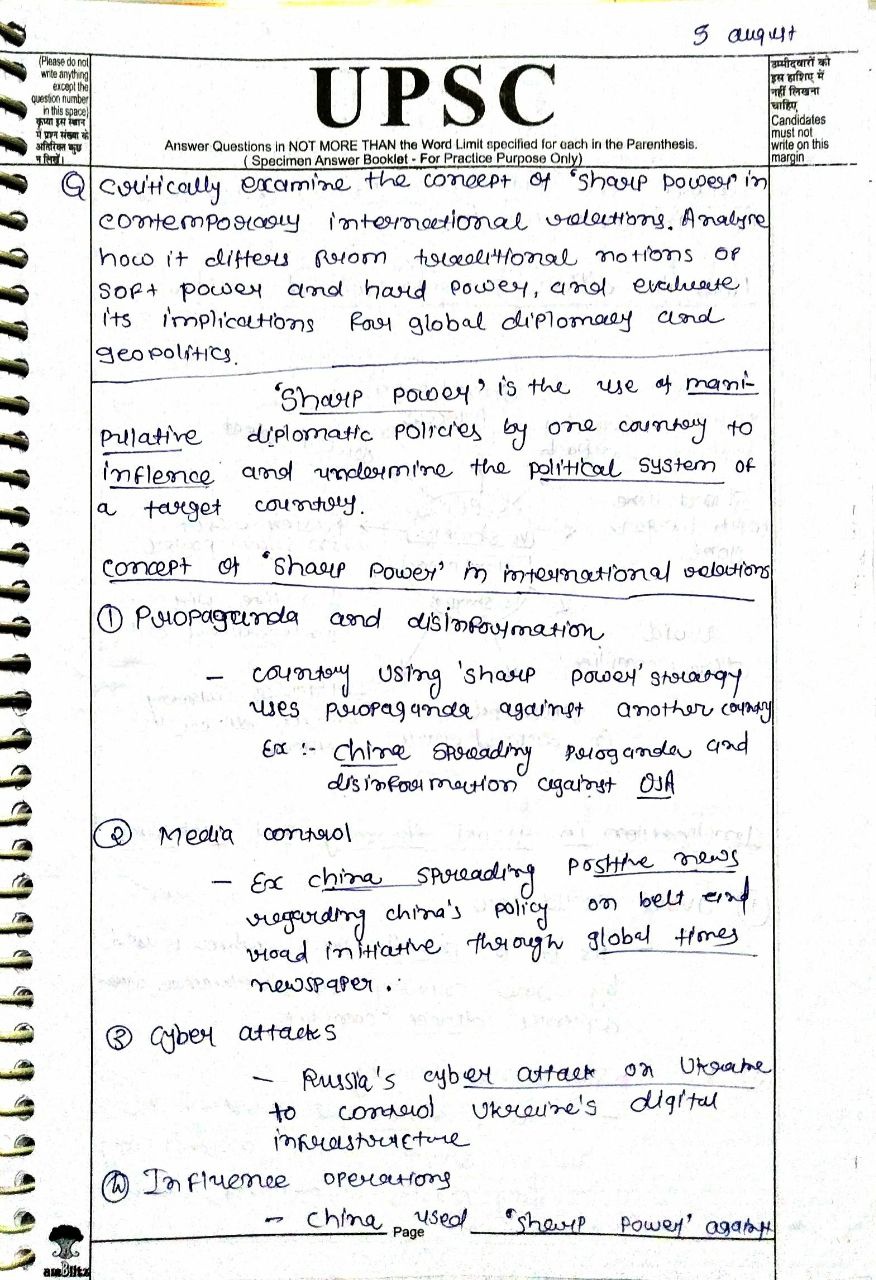 5 august
(Please do not
write anything
except the
question number
in this space)
कृपया इस स्थान
में प्रश्न संख्या के
अतिरिक्त कुछ
न लिखें।
UPSC
Answer Questions in NOT MORE THAN the Word Limit specified for each in the Parenthesis.
( Specimen Answer Booklet - For Practice Purpose Only)
उम्मीदवारों को
इस हाशिए में
नहीं लिखना
चाहिए
Candidates
must not
write on this
margin
Q critically examine the concept of 'sharp power' in
contemporary international relations. Analyse
how it differs from traditional notions of
soft power and hard power, and evaluate
its implications for global diplomacy and
geopolitics.
'Sharp power' is the use of mani-
pulative diplomatic policies by one country to
inflence and undermine the political system of
a target country.
concept of 'sharp power' in international relations
① Propaganda and disinformation
– country using 'sharp power' strategy
uses propaganda against another country
Ex :- china spreading proganda and
disinformation against USA
② Media control
– Ex china spreading positive news
regarding china's policy on belt and
road initiative through global times
newspaper.
③ Cyber attacks
– Russia's cyber attack on Ukraine
to control Ukraine's digital
infrastructure
④ Influence operations
– china used 'sharp power' against
Page
amBlitz